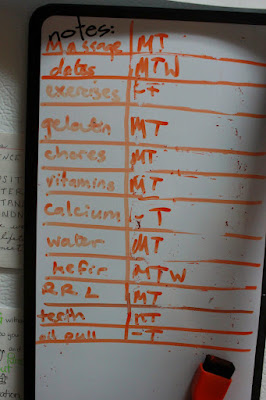 notes:
Massage MT
dates MTW
exercises -T
gelatin MT
chores MT
vitamins MT
calcium -T
water MT
kefir MTW
R.R.L MT
teeth MT
oil pull -T